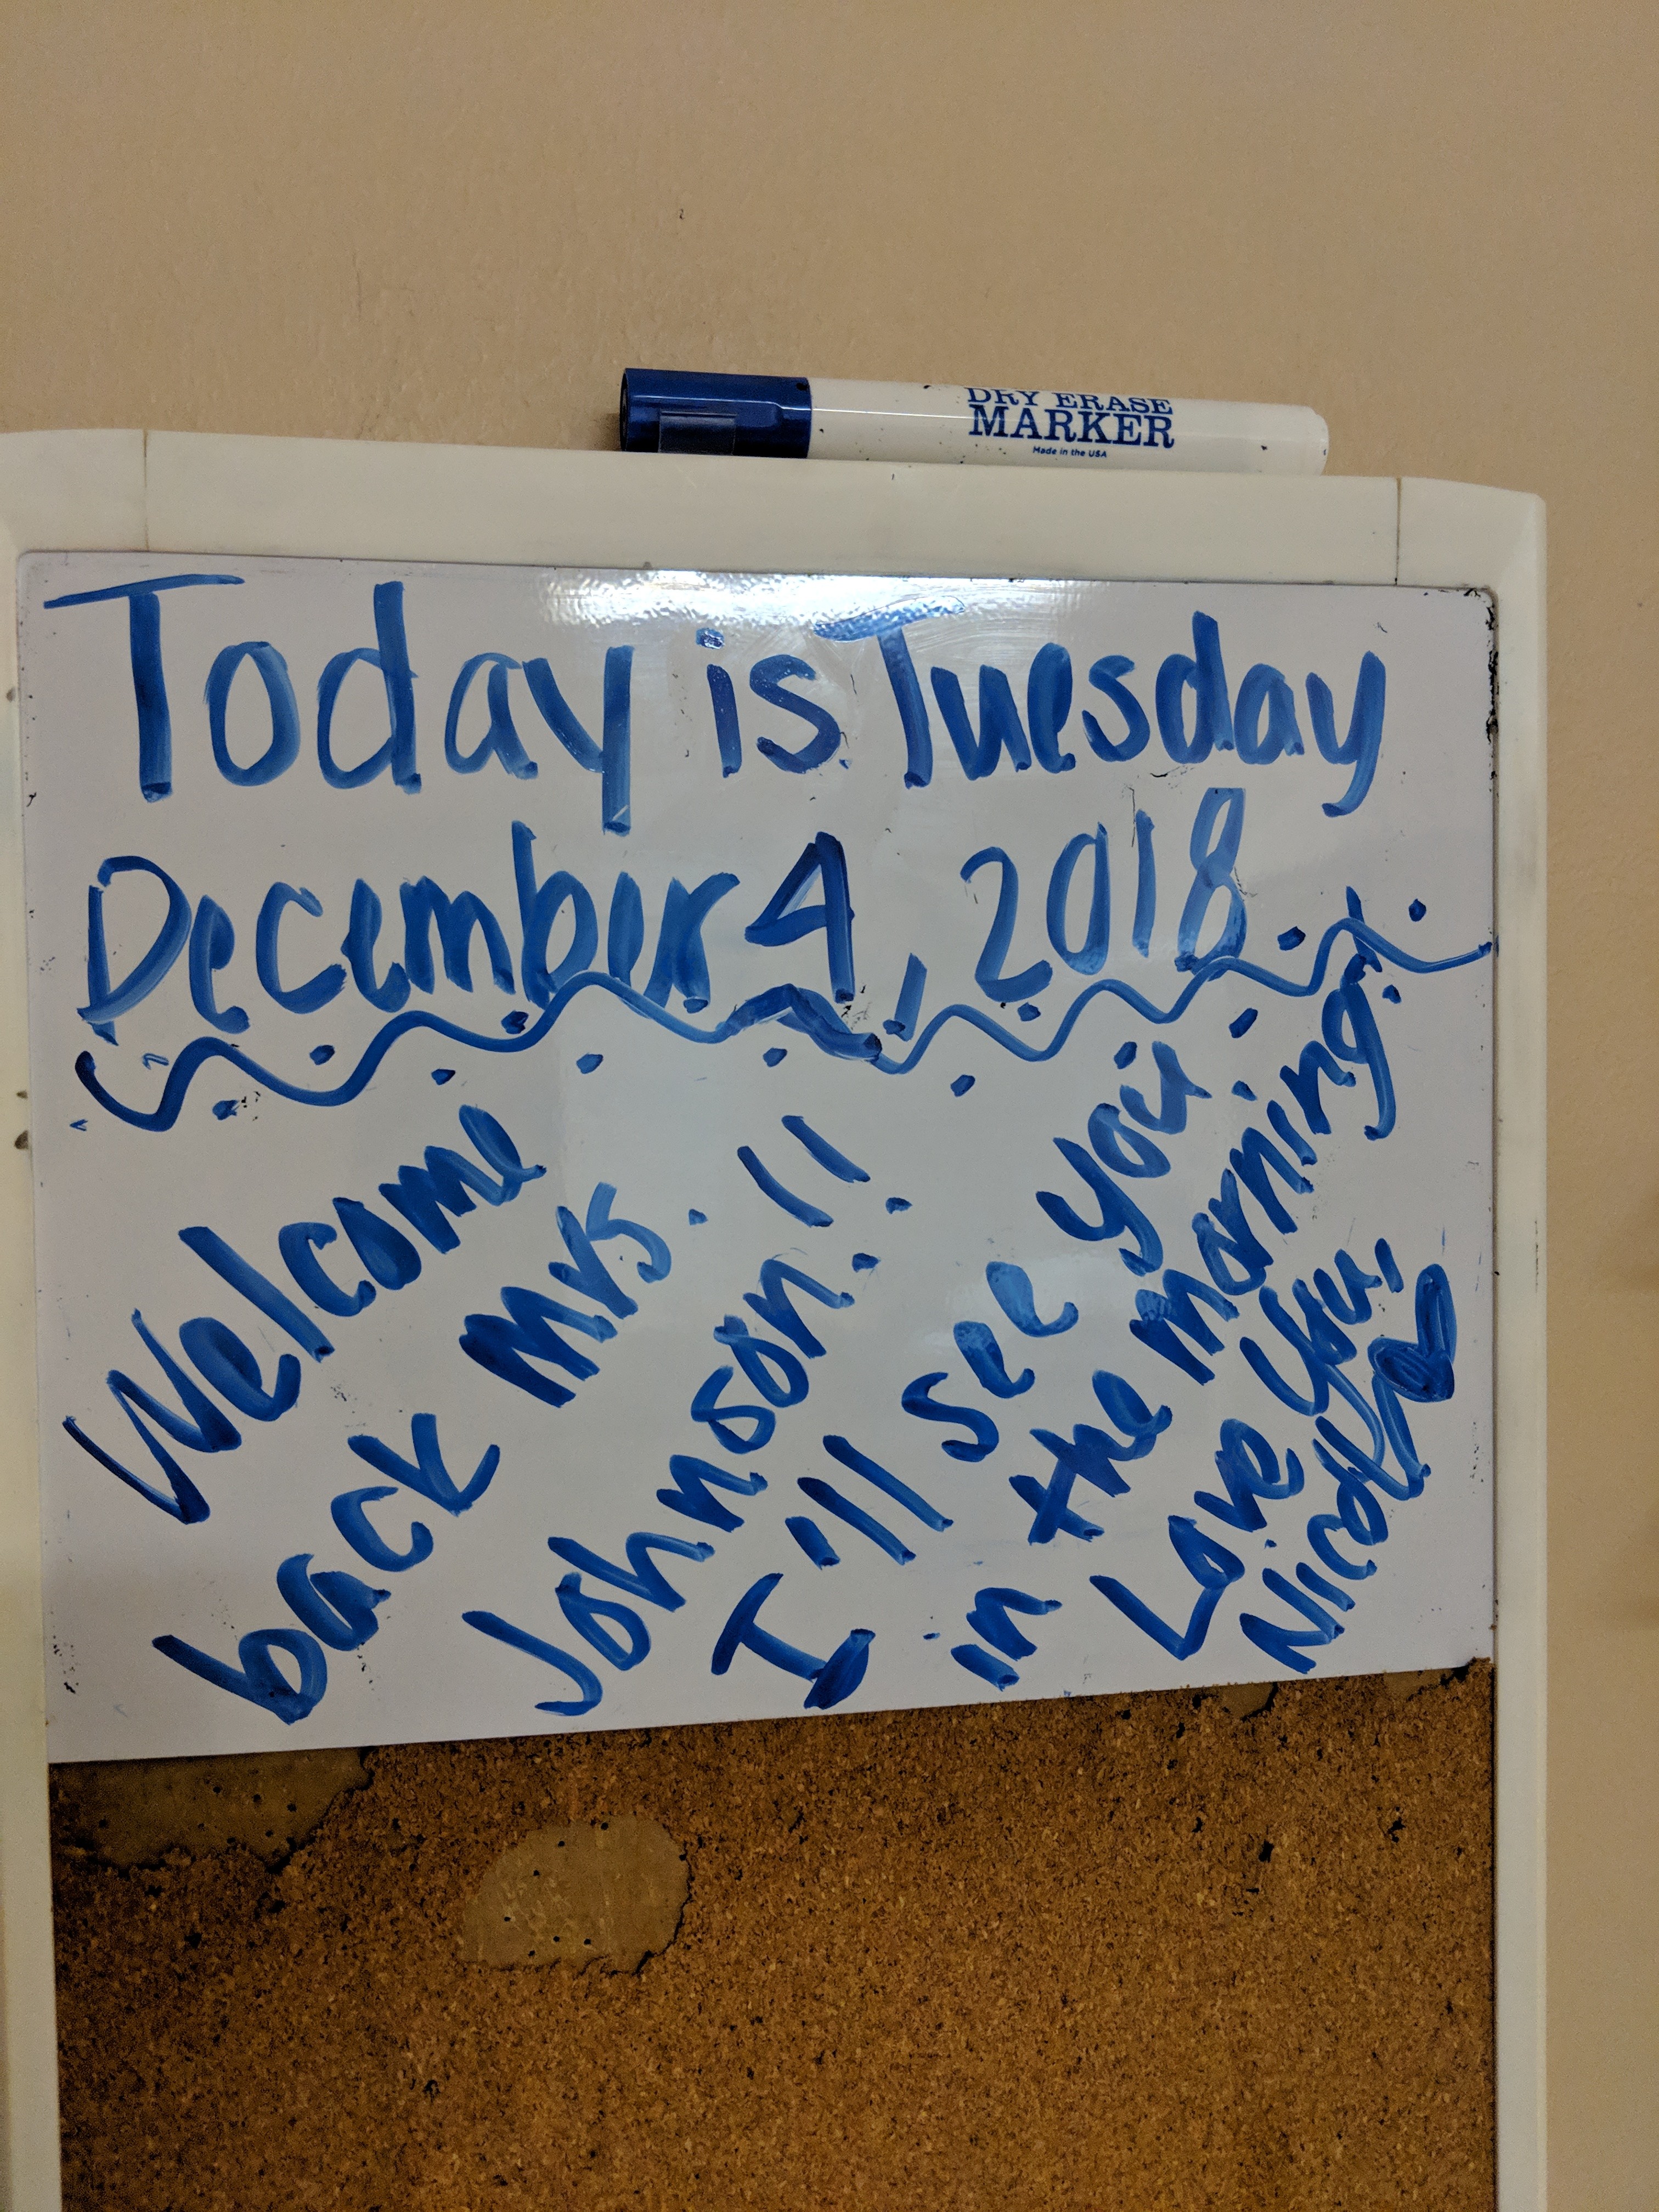 DRY ERASE
MARKER
Made in the USA
Today is Tuesday
December 4, 2018.
Welcome
back Mrs.
Johnson!!
I'll see you
in the morning!
Love you,
Nicole